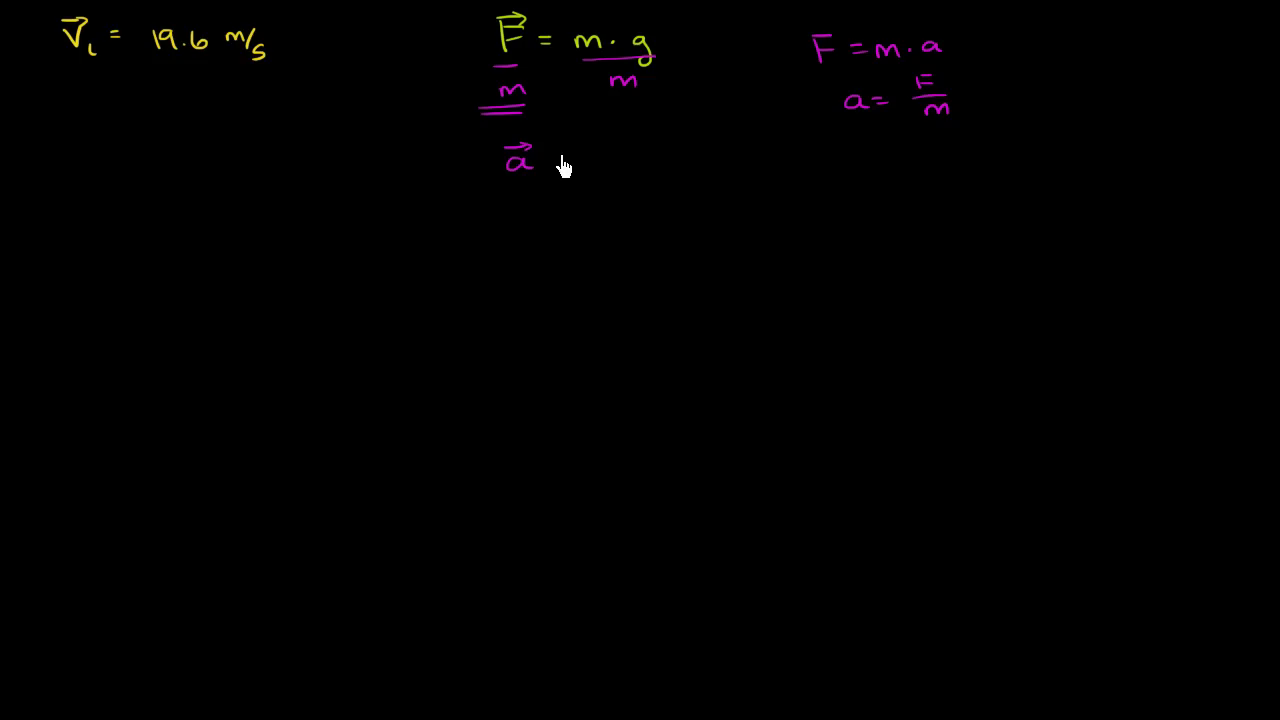 V⃗ᵢ = 19.6 m/s
F⃗ = m · g
m m
a⃗
F = m · a
a = F/m